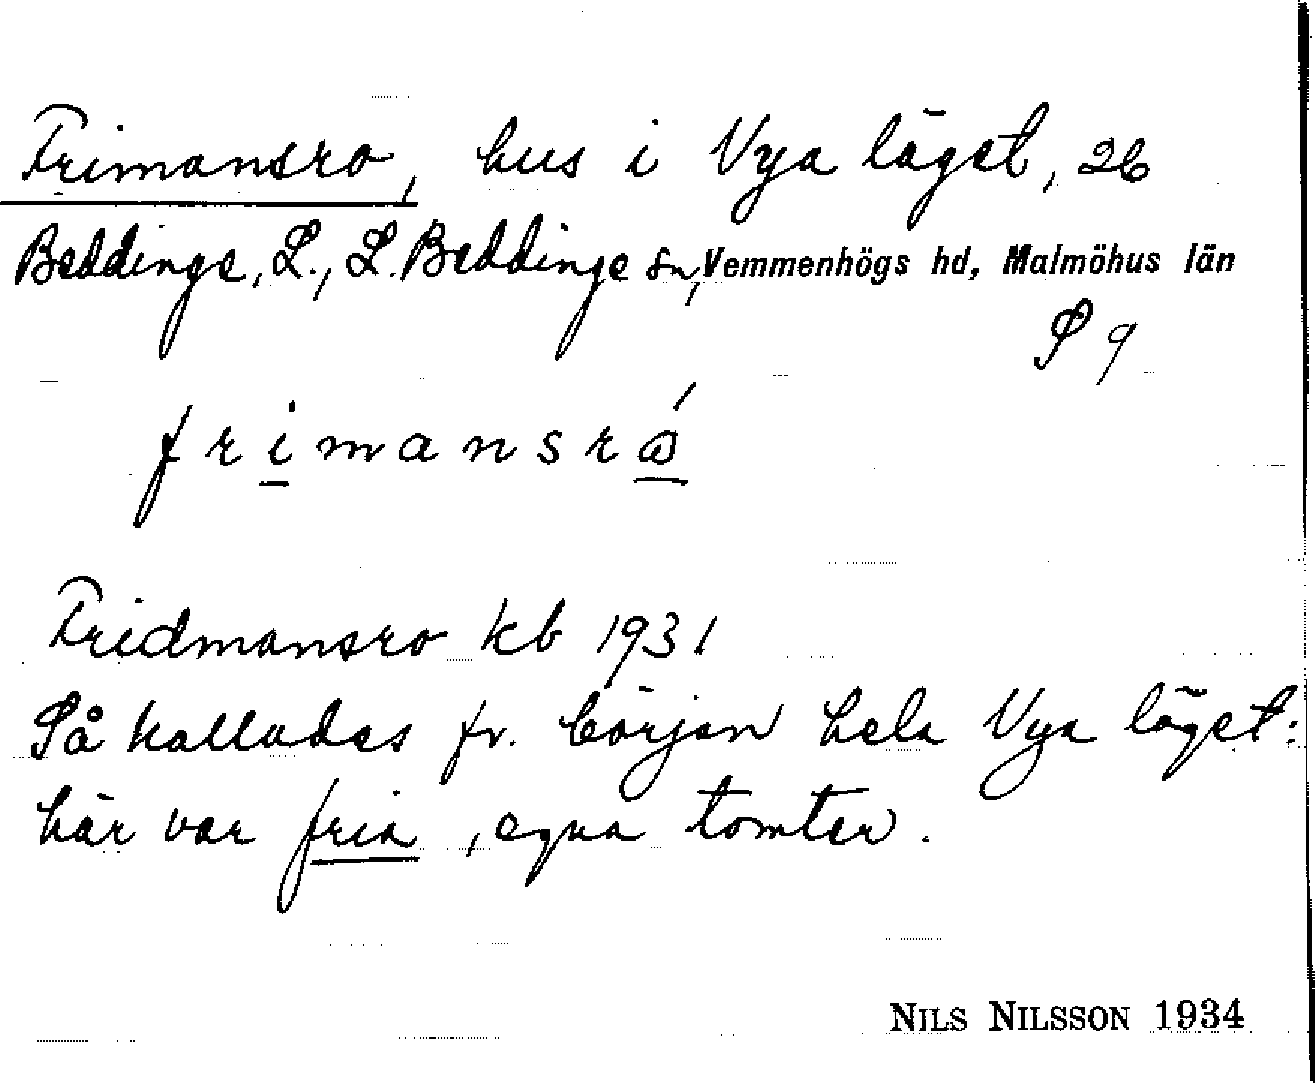 Frimansro, hus i Nya läget, 26
Beddinge, L., L. Beddinge sn, Vemmenhögs hd, Malmöhus län
S 9
frimansró
Fridmansro kb 1931
Så kallades fr. början hela Nya läget:
här var fria, egna tomter.
NILS NILSSON 1934